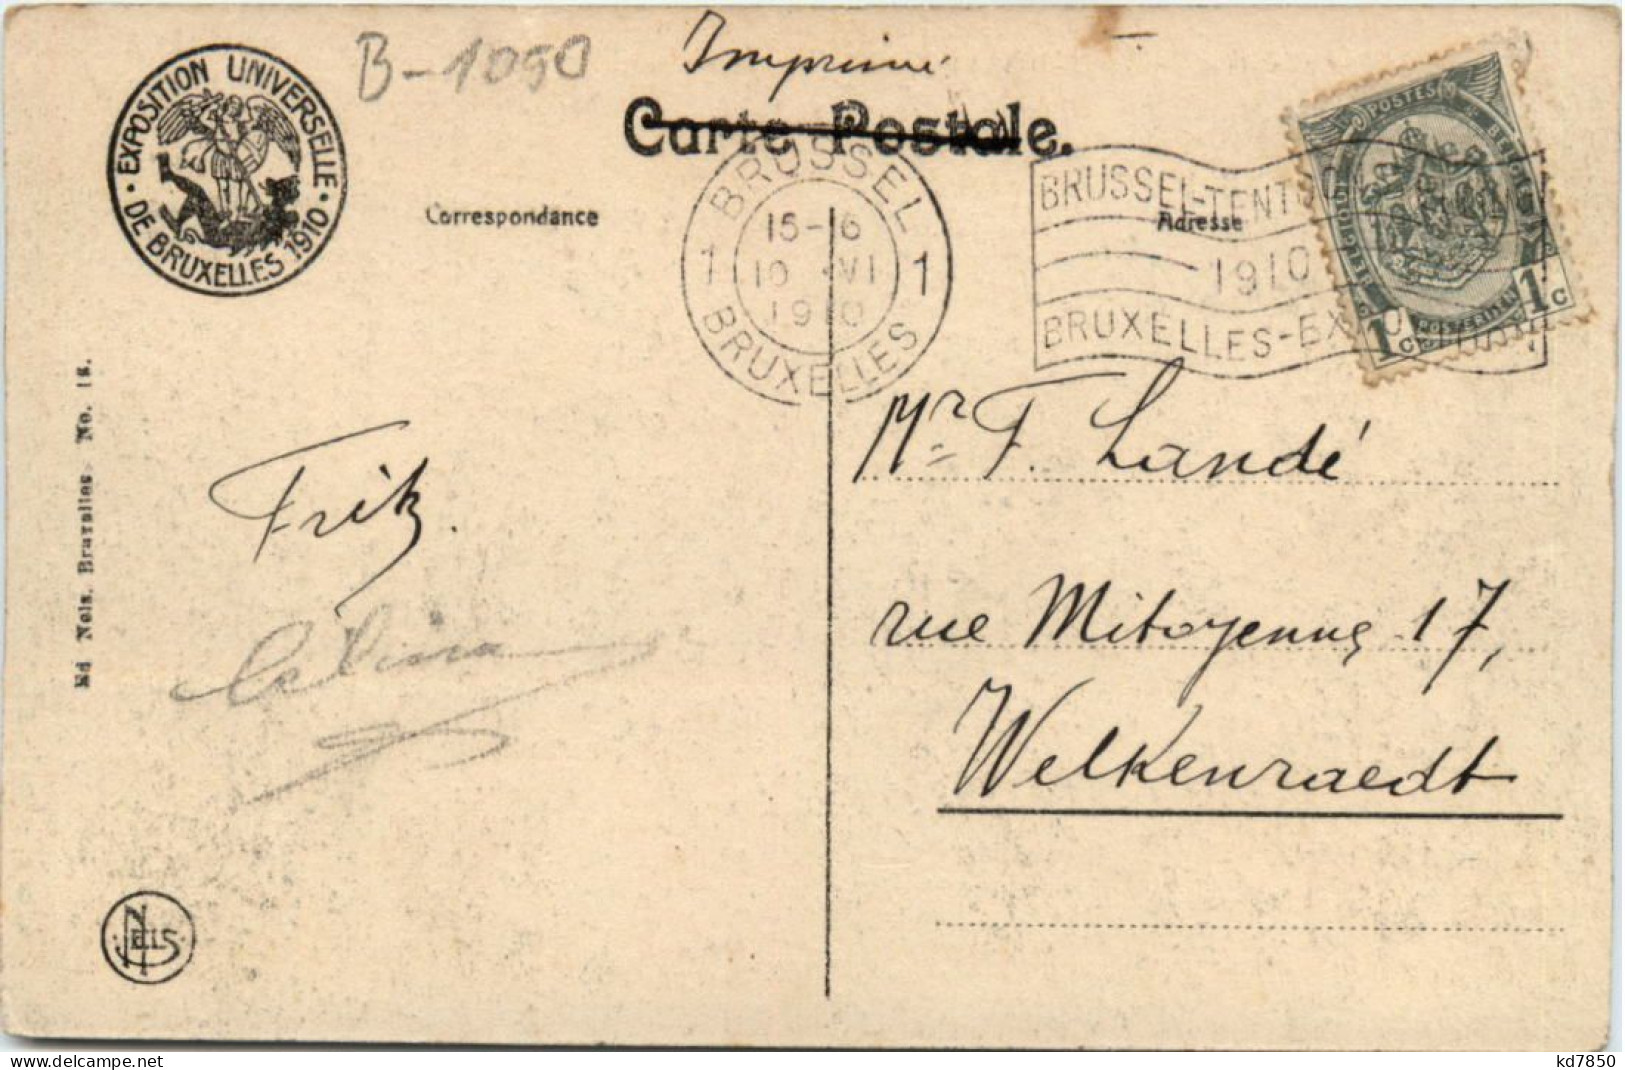 B-1090
Imprimé
Carte Postale.
· EXPOSITION UNIVERSELLE ·
DE BRUXELLES 1910
Correspondance
Adresse
BRUSSEL
1 15-16 1
10 VI
1910
BRUXELLES
BRUSSEL-TENT
1910
BRUXELLES-EX
POSTES
1c
1c
Mr F. Landé
Fritz.
rue Mitoyenne 17,
Welkenraedt
Ed Nels, Bruxelles No. 18.
NELS
delcampe.net
kd7850